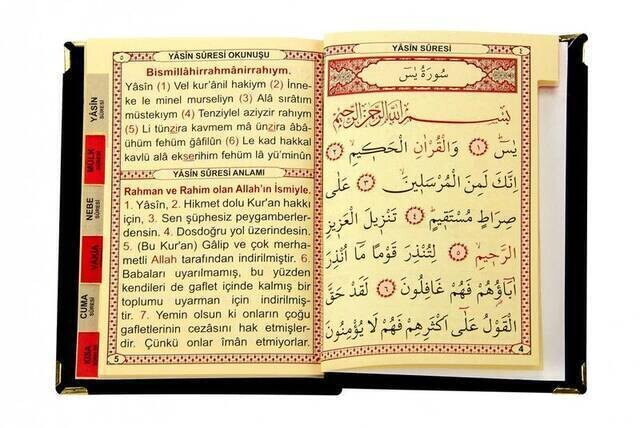 YÂSİN SÛRESİ OKUNUŞU
Bismillâhirrahmânirrahıym.
Yâsîn (1) Vel kur'ânil hakiym (2) İnne-
ke le minel murseliyn (3) Alâ sırâtım
müstekıym (4) Tenziylel aziyzir rahıym
(5) Li tünzira kavmem mâ ünzira âbâ-
ühüm fehüm ğâfilûn (6) Le kad hakkal
kavlü alâ ekserihim fehüm lâ yü'minûn
YÂSİN SÛRESİ ANLAMI
Rahman ve Rahim olan Allah'ın İsmiyle.
1. Yâsîn, 2. Hikmet dolu Kur'an hakkı
için, 3. Sen şüphesiz peygamberler-
densin. 4. Dosdoğru yol üzerindesin.
5. (Bu Kur'an) Gâlip ve çok merha-
metli Allah tarafından indirilmiştir. 6.
Babaları uyarılmamış, bu yüzden
kendileri de gaflet içinde kalmış bir
toplumu uyarman için indirilmiş-
tir. 7. Yemin olsun ki onların çoğu
gafletlerinin cezâsını hak etmişler-
dir. Çünkü onlar îmân etmiyorlar.
5
YÂSİN SÛRESİ
MÜLK SÛRESİ
NEBE SÛRESİ
VAKIA
CUMA SÛRESİ
KISA
YÂSİN SÛRESİ
٤
سُورَةُ يٰسٓ
بِسْمِ اللّٰهِ الرَّحْمٰنِ الرَّحِيمِ
يٰسٓ ﴿١﴾ وَالْقُرْاٰنِ الْحَكِيمِ ﴿٢﴾
اِنَّكَ لَمِنَ الْمُرْسَلِينَ ﴿٣﴾ عَلٰى
صِرَاطٍ مُسْتَقِيمٍ ﴿٤﴾ تَنْزِيلَ الْعَزِيزِ
الرَّحِيمِ ﴿٥﴾ لِتُنْذِرَ قَوْمًا مَا اُنْذِرَ
اٰبَاؤُهُمْ فَهُمْ غَافِلُونَ ﴿٦﴾ لَقَدْ حَقَّ
الْقَوْلُ عَلٰى اَكْثَرِهِمْ فَهُمْ لَا يُؤْمِنُونَ
4